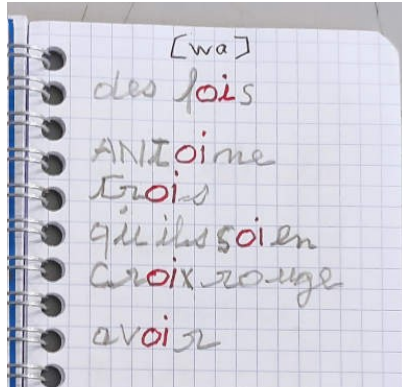 [wa]
des fois
ANtoine
trois
qu'ils soien
Croix rouge
avoir